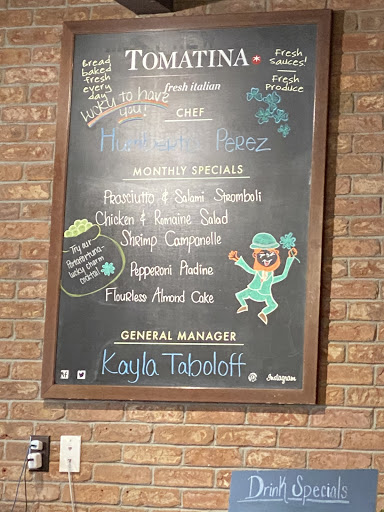 TOMATINA
fresh italian
Bread
baked
fresh
every
day
Fresh
Sauces!
Fresh
Produce
lucky to have
you!
CHEF
Humberto Perez
MONTHLY SPECIALS
Prosciutto & Salami Stromboli
Chicken & Romaine Salad
Shrimp Campanelle
Pepperoni Piadine
Flourless Almond Cake
Try our
lucky charm
cocktail!
GENERAL MANAGER
Kayla Taboloff
Instagram
Drink Specials